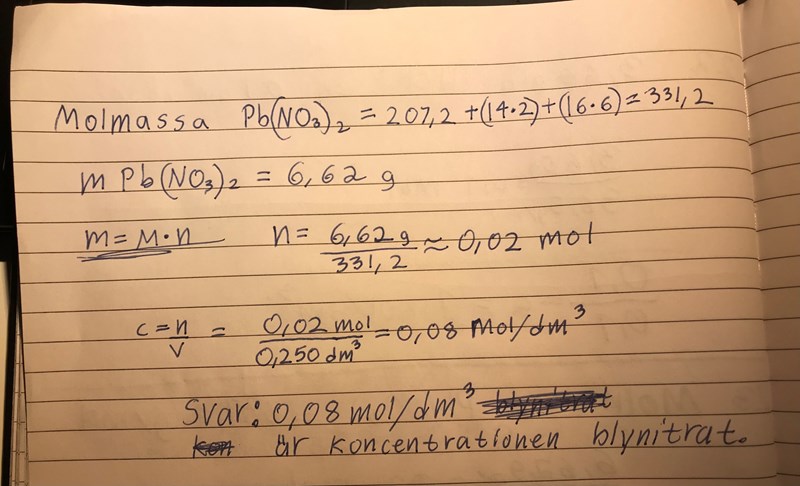 Molmassa Pb(NO₃)₂ = 207,2 +(14·2)+(16·6)=331,2
m Pb(NO₃)₂ = 6,62 g
m=M·n n= 6,62 g / 331,2 ≈ 0,02 mol
c=n/V = 0,02 mol / 0,250 dm³ = 0,08 mol/dm³
Svar: 0,08 mol/dm³ blynitrat
kon är koncentrationen blynitrat.